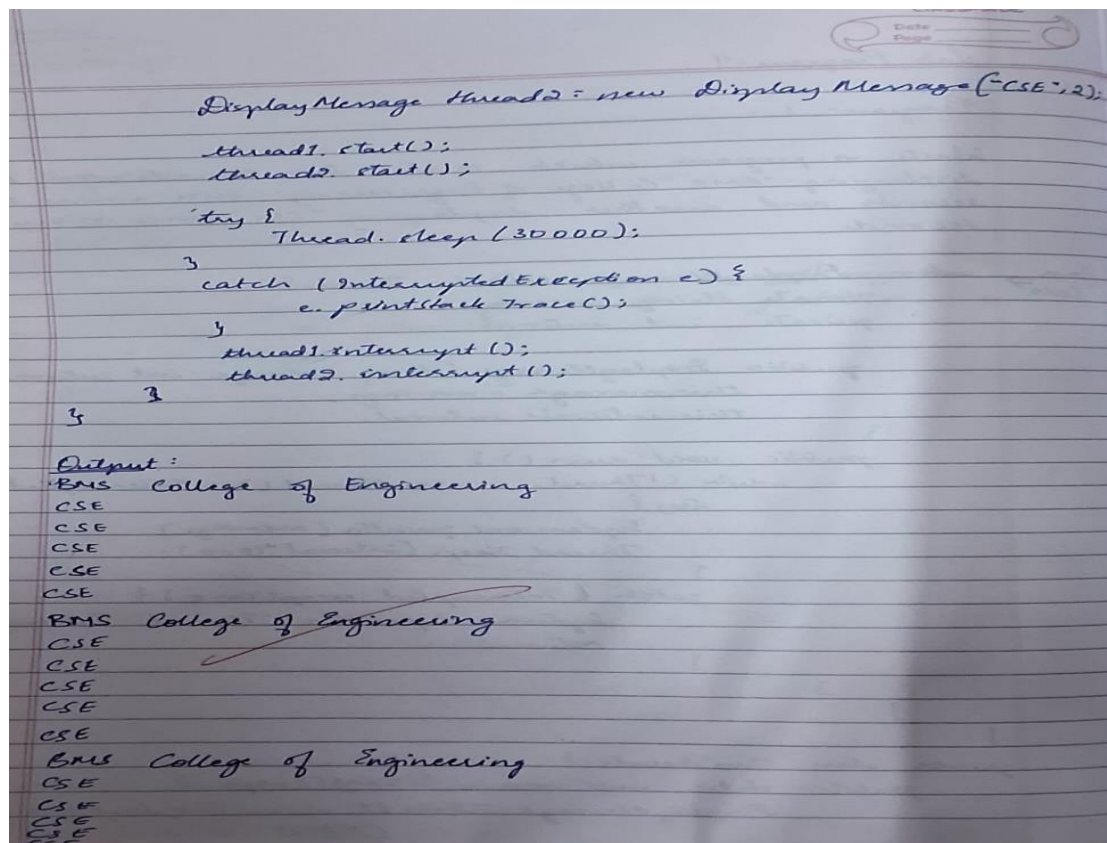 Date
Page
DisplayMessage thread2 = new DisplayMessage("CSE", 2);
thread1. start();
thread2. start();
try {
Thread. sleep (30000);
}
catch (InterruptedException e) {
e. printStackTrace();
}
thread1. interrupt ();
thread2. interrupt ();
}
}
Output :
BMS College of Engineering
CSE
CSE
CSE
CSE
CSE
BMS College of Engineering
CSE
CSE
CSE
CSE
CSE
BMS College of Engineering
CSE
CSE
CSE
CSE